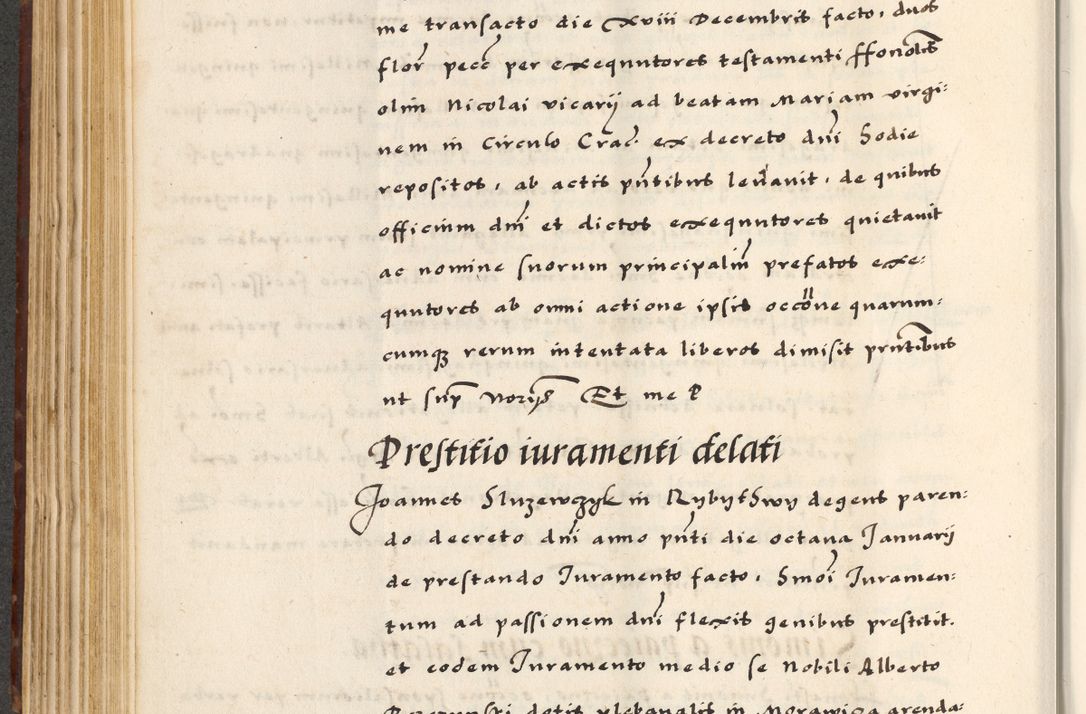 me transacto die Xviii Decembris facto, duos
flor pecc per exequutores testamenti
olim Nicolai vicarij ad beatam Mariam virgi:
nem in Circulo Crac. ex decreto dni hodie
repositos, ab actis pntibus levavit, de quibus
officium dni et dictos exequutores quietavit
ac nomine suorum principalium prefatos exe:
quutores ab omni actione ipsis occone quarum:
cumq3 rerum intentata liberos dimisit prntibus
ut sup Et me P
Prestitio iuramenti delati
Joannes Sluzewczyk in degens paren:
do decreto dni anno pnti die octava Januarij
de prestando Juramento facto, Juramen:
tum ad passionem dni flexis genibus prestitit.
et eodem Juramento medio se Nobili Alberto
dotis plebanalis in Morawica arenda: